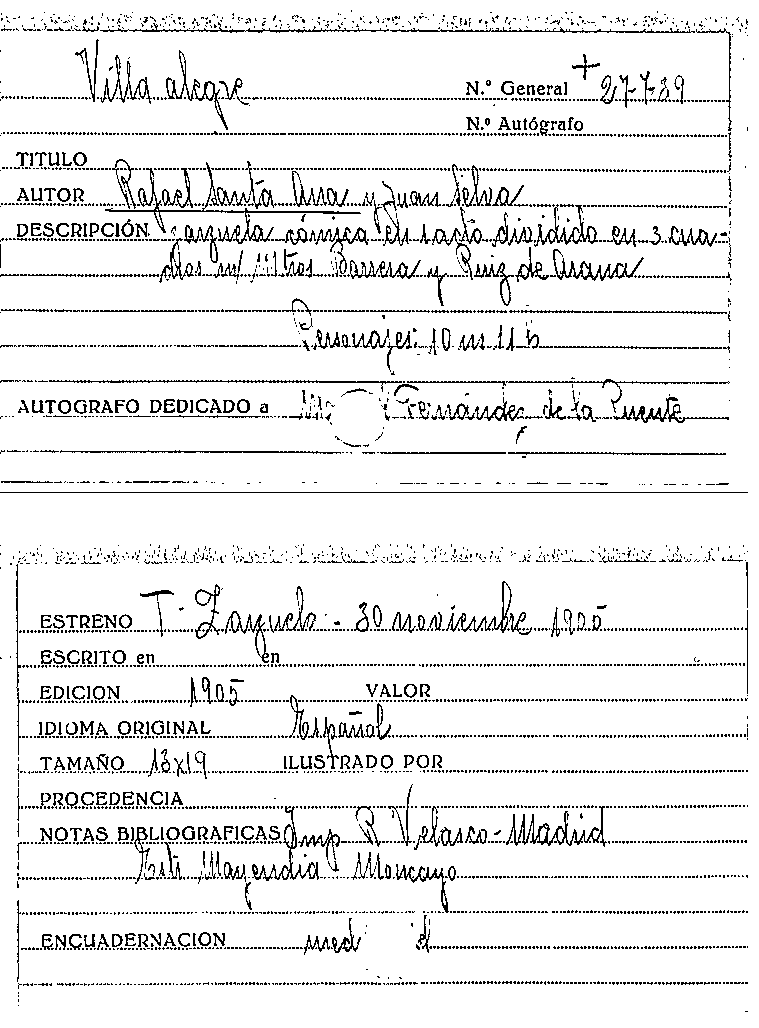 Villa alegre
N.º General + 27-7-39
N.º Autógrafo
TITULO
AUTOR Rafael Santa Ana y Juan Silva
DESCRIPCIÓN Zarzuela cómica en 1 acto dividido en 3 cua-
dros m/ Mtros Barrera y Ruiz de Arana
Personajes: 10 m 11 h
AUTOGRAFO DEDICADO a Fernández de la Puente
ESTRENO T. Zarzuela - 30 noviembre 1905
ESCRITO en en
EDICION 1905 VALOR
IDIOMA ORIGINAL Español
TAMAÑO 13x19 ILUSTRADO POR
PROCEDENCIA
NOTAS BIBLIOGRAFICAS Imp R Velasco - Madrid
Mayendia Moncayo
ENCUADERNACION med